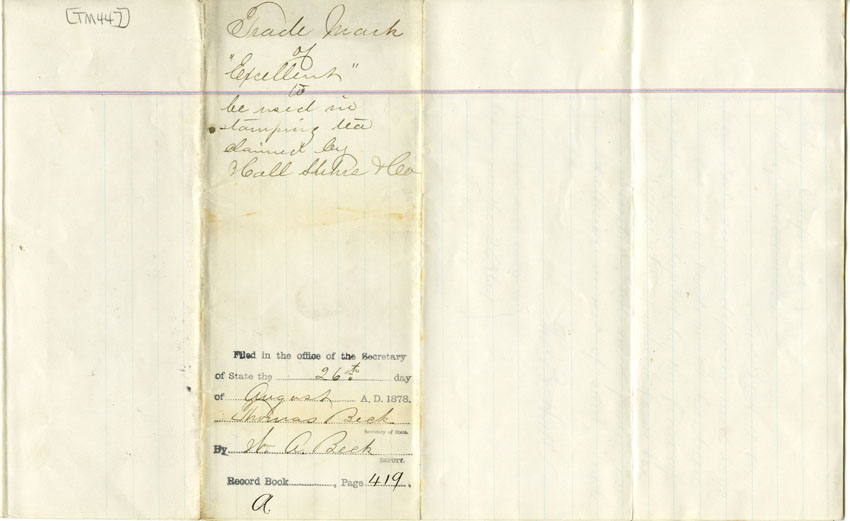 [TM447]
Trade Mark
of
"Excellent"
to
be used in
stamping tea
claimed by
Hall & Co
Filed in the office of the Secretary
of State the 26th day
of August A. D. 1878.
Thomas Beck
Secretary of State.
By W. A. Beck
DEPUTY.
Record Book, Page 419.
A